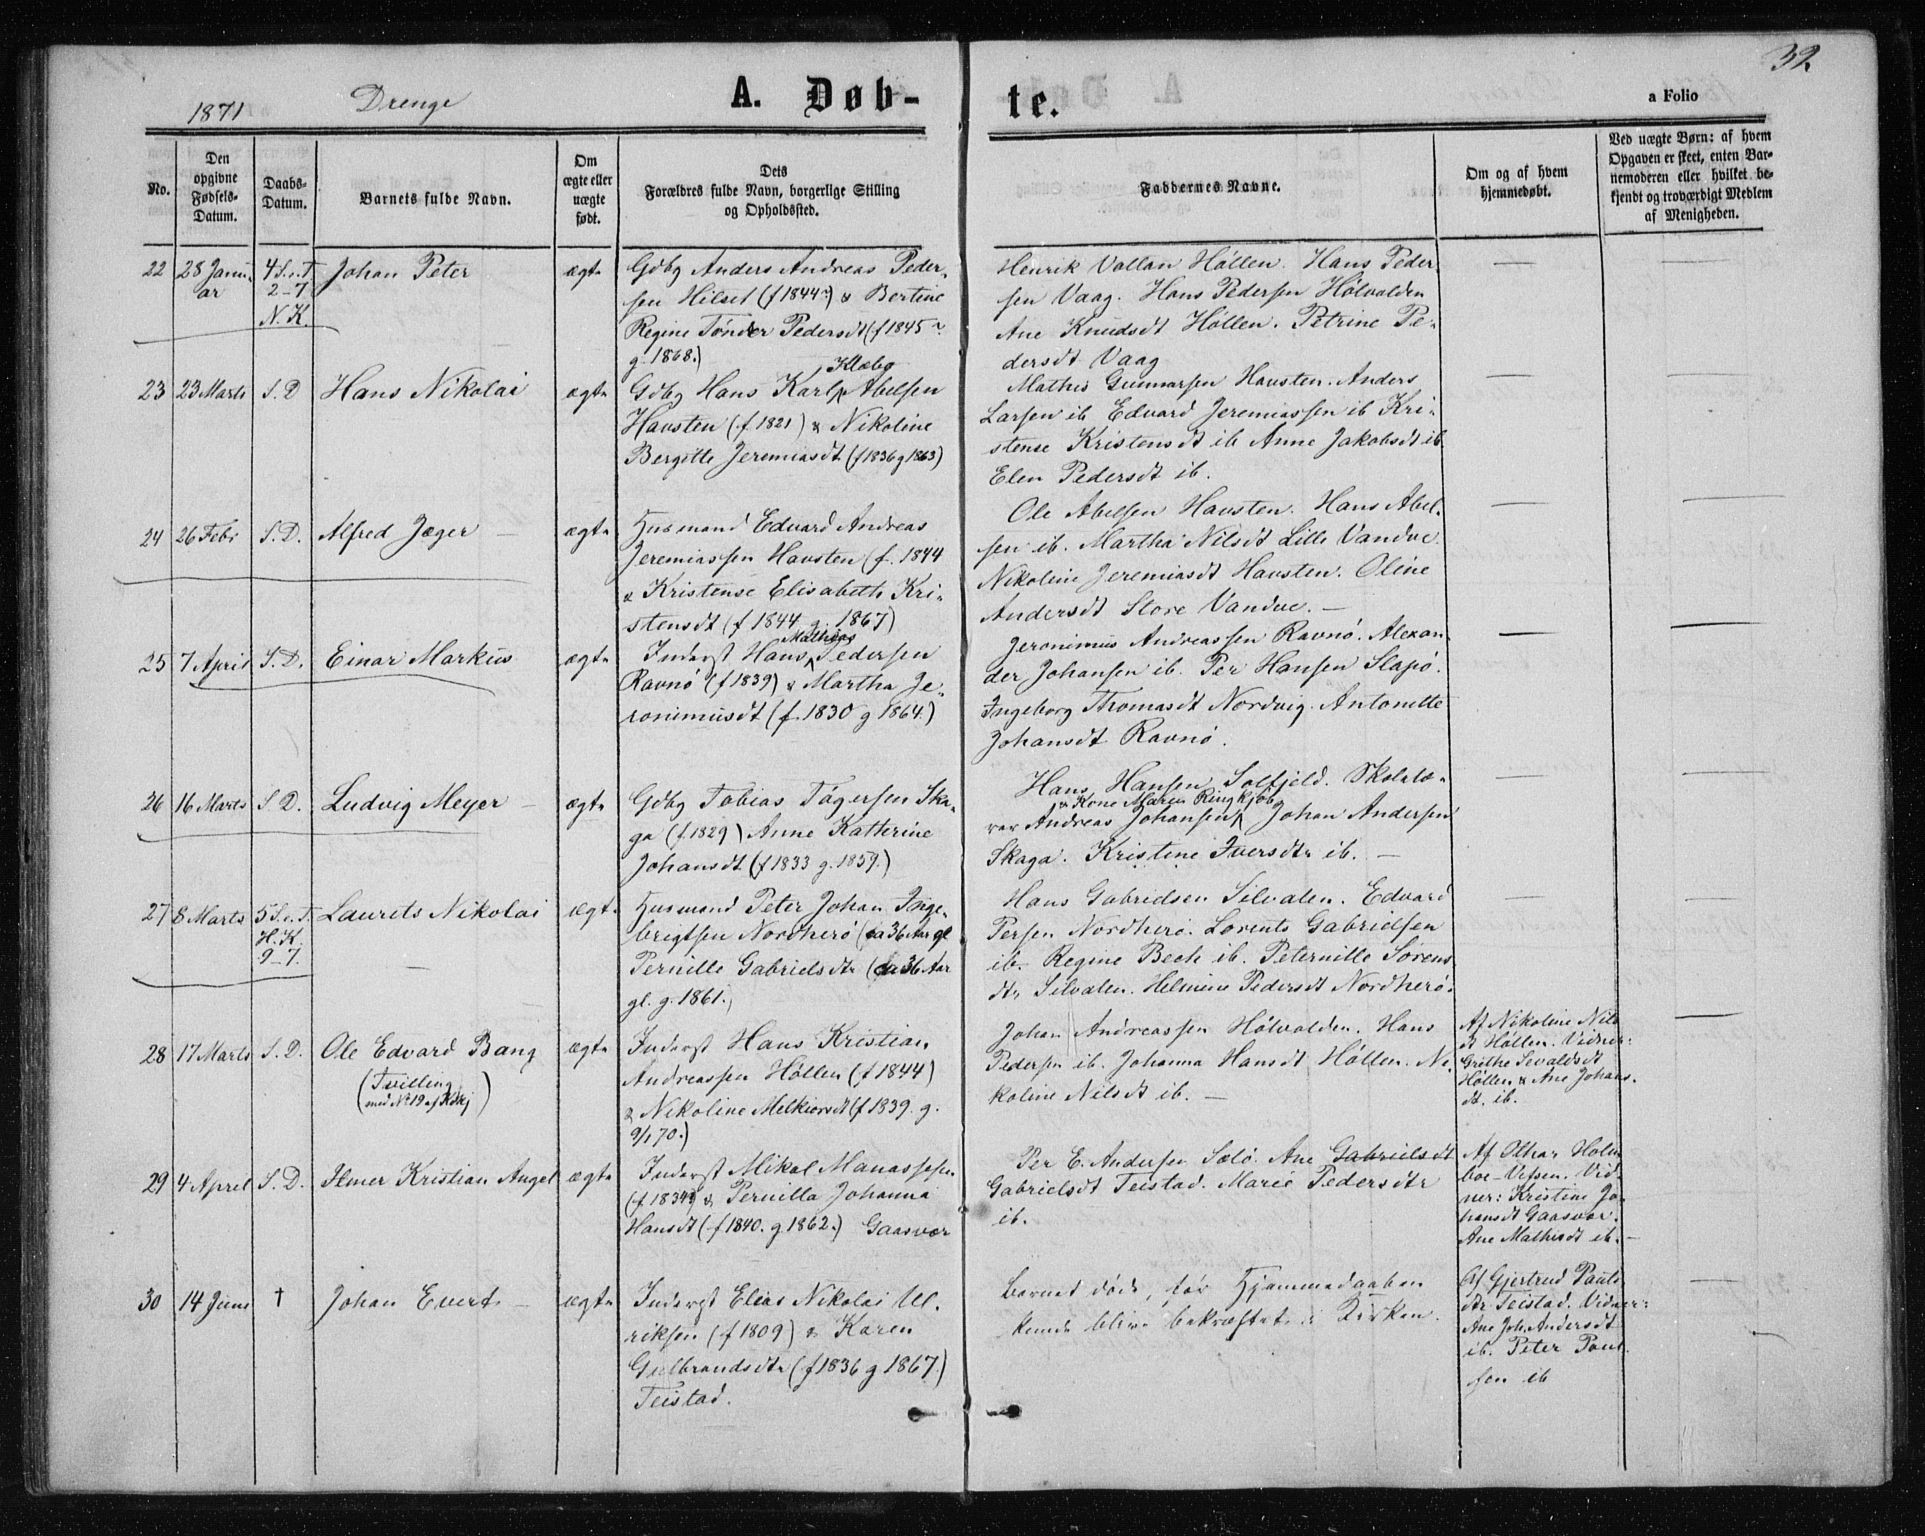 32
1871
Drenge
A. Døb-
te.
a Folio
No.
Den
opgivne
Fødsels-
Datum.
Daabs-
Datum.
Barnets fulde Navn.
Om
ægte eller
uægte
født.
Dets
Forældres fulde Navn, borgerlige Stilling
og Opholdssted.
Faddernes Navne.
Om og af hvem
hjemmedøbt.
Ved uægte Børn: af hvem
Opgaven er skeet, enten Bar-
nemoderen eller hvilket be-
kjendt og troværdigt Medlem
af Menigheden.
22
28 Janu-
ar
4 S. e. T
2-7
N. K.
Johan Peter
ægte
Gdbg Anders Andreas Peder-
sen Hilset (f 1844) & Bertine
Regine Tønder Pedersdt (f 1845
g. 1868.)
Henrik Vallan Høllen. Hans Peder-
sen Vaag. Hans Pedersen Hølvalden
Ane Knudsdt Høllen. Petrine Pe-
dersdt Vaag
23
23 Marts
S. D
Hans Nikolai
ægte
Klæbo
Gdbg Hans Karl Abelsen
Havsten (f 1821) & Nikoline
Bergitte Jeremiasdt (f 1836 g 1863)
Mathis Gunnarsen Havsten. Anders
Larsen ib Edvard Jeremiassen ib Kri-
stense Kristensdt ib Anne Jakobsdt ib
Elen Pedersdt ib.
24
26 Febr
S. D.
Alfred Jæger
ægte
Husmand Edvard Andreas
Jeremiassen Havsten (f. 1844
& Kristense Elisabeth Kri-
stensdt (f 1844 g. 1867)
Ole Abelsen Havsten. Hans Abel-
sen ib. Martha Nilsdt Lille Vandve.
Nikoline Jeremiasdt Havsten. Oline
Andersdt Store Vandve. —
25
7 April
S. D.
Einar Markus
ægte
Mathias
Inderst Hans Pedersen
Ravnø (f 1839) & Martha Je-
ronimusdt (f. 1830 g 1864.)
Jeronimus Andreassen Ravnø. Alexan-
der Johansen ib. Per Hansen Slapø.
Ingeborg Thomasdt Nordvig. Antonette
Johansdt Ravnø.
26
16 Marts
S. D.
Ludvig Meyer —
ægte
Gdbg Tobias Tøgersen Ska-
ga (f. 1829) Anne Katterine
Johansdt (f 1833 g. 1859.)
Hans Hansen Solfjeld. Skolelæ-
& Kone Maren Ringkjøb
rer Andreas Johansen, Johan Andersen
Skaga. Kristine Iversdtr ib. —
27
8 Marts
5 S. e. T.
H. K.
9-7.
Laurits Nikolai
ægte
Husmand Peter Johan Inge-
brigtsen Nordherø (ca 36 Aar gl
Pernille Gabrielsdtr (ca 36 Aar
gl. g. 1861.)
Hans Gabrielsen Silvalen. Edvard
Persen Nordherø. Lorents Gabrielsen
ib. Regine Bech ib. Peternille Sørens
dtr Silvalen. Helmine Pedersdt Nordherø.
28
17 Marts
S. D.
Ole Edvard Bang
(Tvilling
med No 19 af Kvkj)
ægte
Inderst Hans Kristian
Andreassen Høllen (f 1844)
& Nikoline Melkiorsdt (f 1839. g.
9/1 70.)
Johan Andreassen Hølvalden. Hans
Pedersen ib. Johanna Hansdt Høllen. Ni-
koline Nilsdt ib. —
Af Nikoline Nils
dt Høllen. Vidner:
Grethe Sevaldsdt
Høllen & Ane Johans-
dt. ib.
29
4 April
S. D.
Elmer Kristian Angel
ægte
Inderst Mikal Manassesen
(f 1834) & Pernilla Johanna
Hansdt (f 1840. g 1862.) Gaasvær
Per E. Andersen Sølø. Ane Gabrielsdt
Gabrielsdt Teistad. Marie Pedersdtr
ib.
Af Othar Holm
boe-Vefsen. Vid-
ner: Kristine Jo-
hansdt Gaasvær.
Ane Mathisdt ib.
30
14 Juni
†
Johan Evert —
ægte
Inderst Elias Nikolai Ul-
riksen (f 1809) & Karen
Gulbrandsdtr (f 1836 g 1867.)
Teistad.
Barnet døde, før Hjemmedaaben
kunde blive bekræftet i Kirken.
Af Gjertrud Pauls
dtr Teistad. Vidner:
Ane Joh. Andersdt
ib. Peter Paul-
sen ib